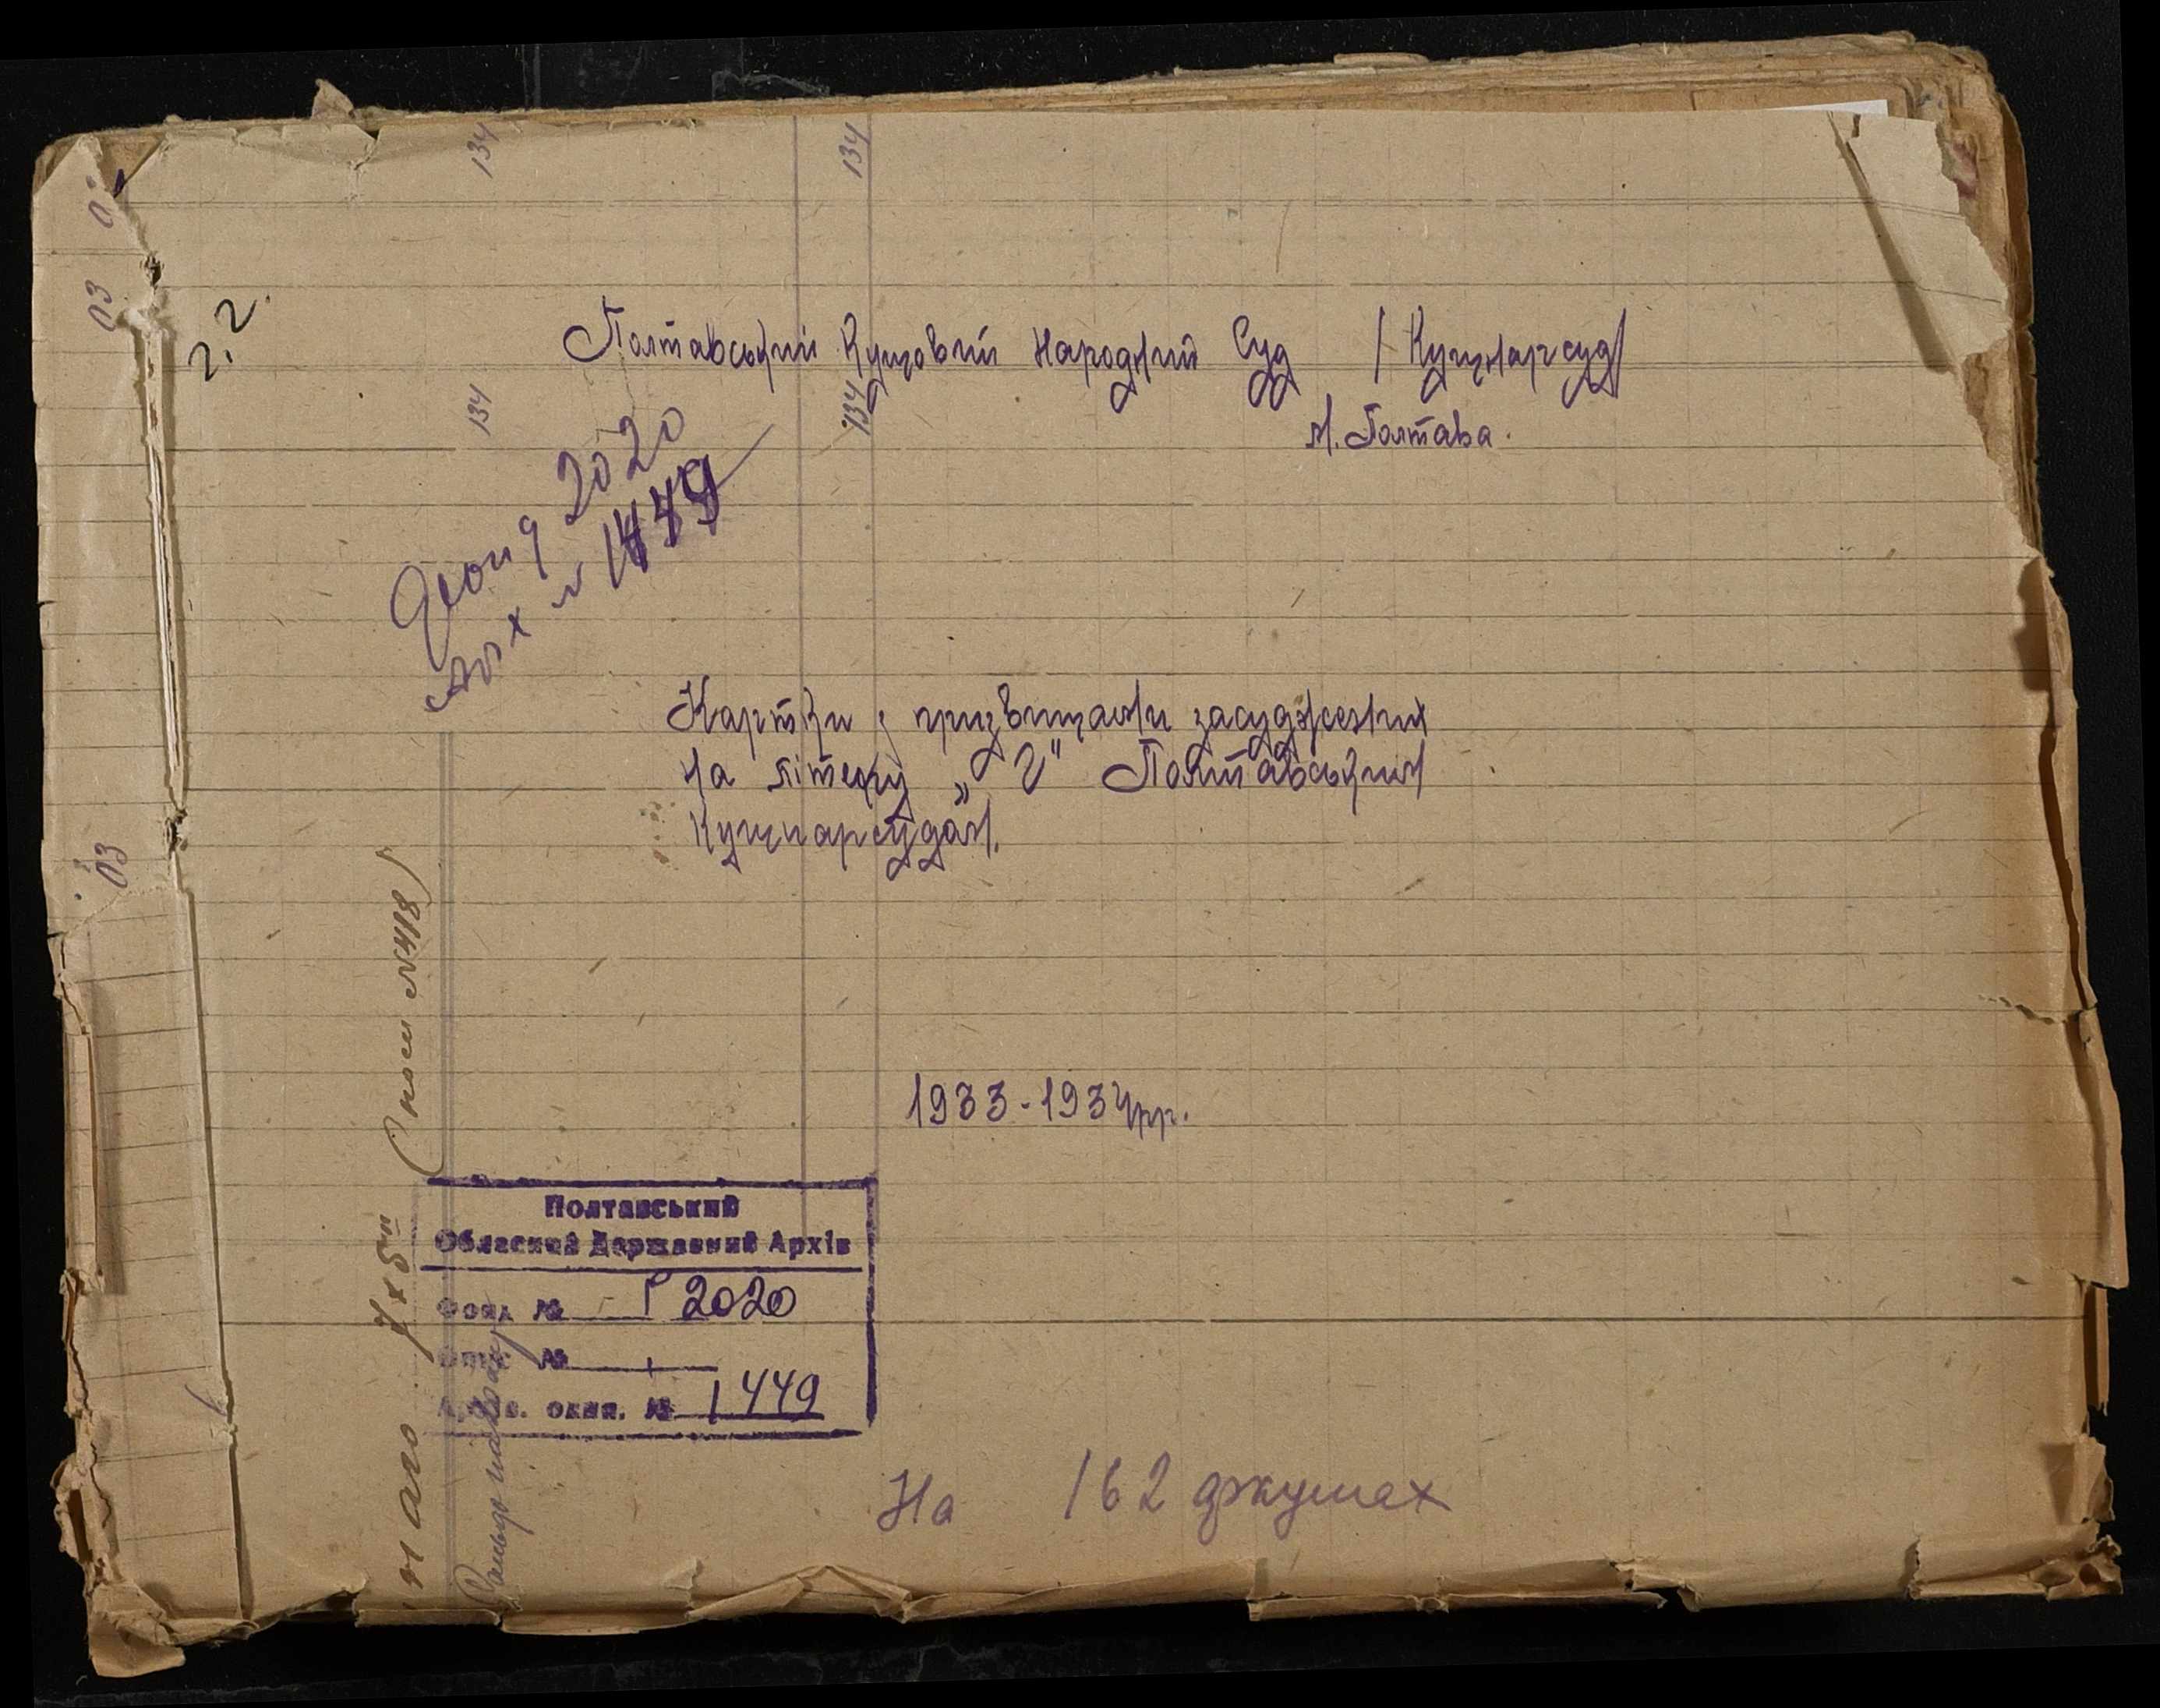 Полтавський Кущовий Народний Суд / Кущнарсуд/
м. Полтава.
г. г.
Фонд 2020
арх № 1449
Картки з призвищами засуджених
на літеру „Г" Полтавським
Кущнарсудом.
1933-1934рр.
Полтавський
Обласний Державний Архів
Фонд № Р 2020
Опис № 1
Архів. один. № 1449
На 162 аркушах
134
134
134
134
03
03